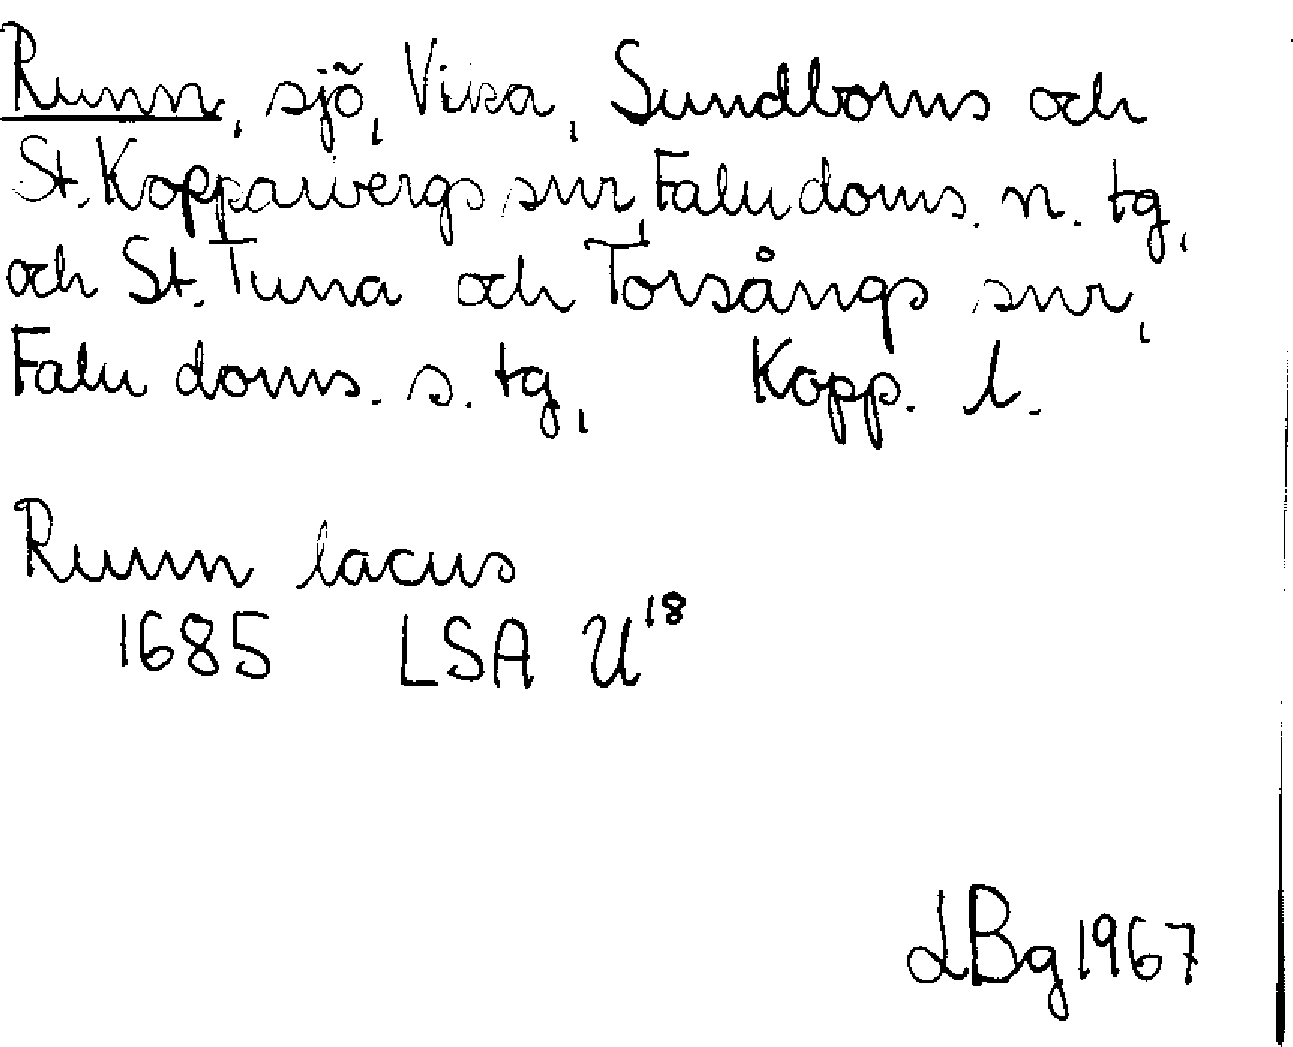 Runn, sjö, Vika, Sundborns och
St. Kopparbergs snr, Falu doms. n. tg,
och St. Tuna och Torsångs snr,
Falu doms. s. tg, Kopp. l.
Runn lacus
1685 LSA U18
LBg 1967